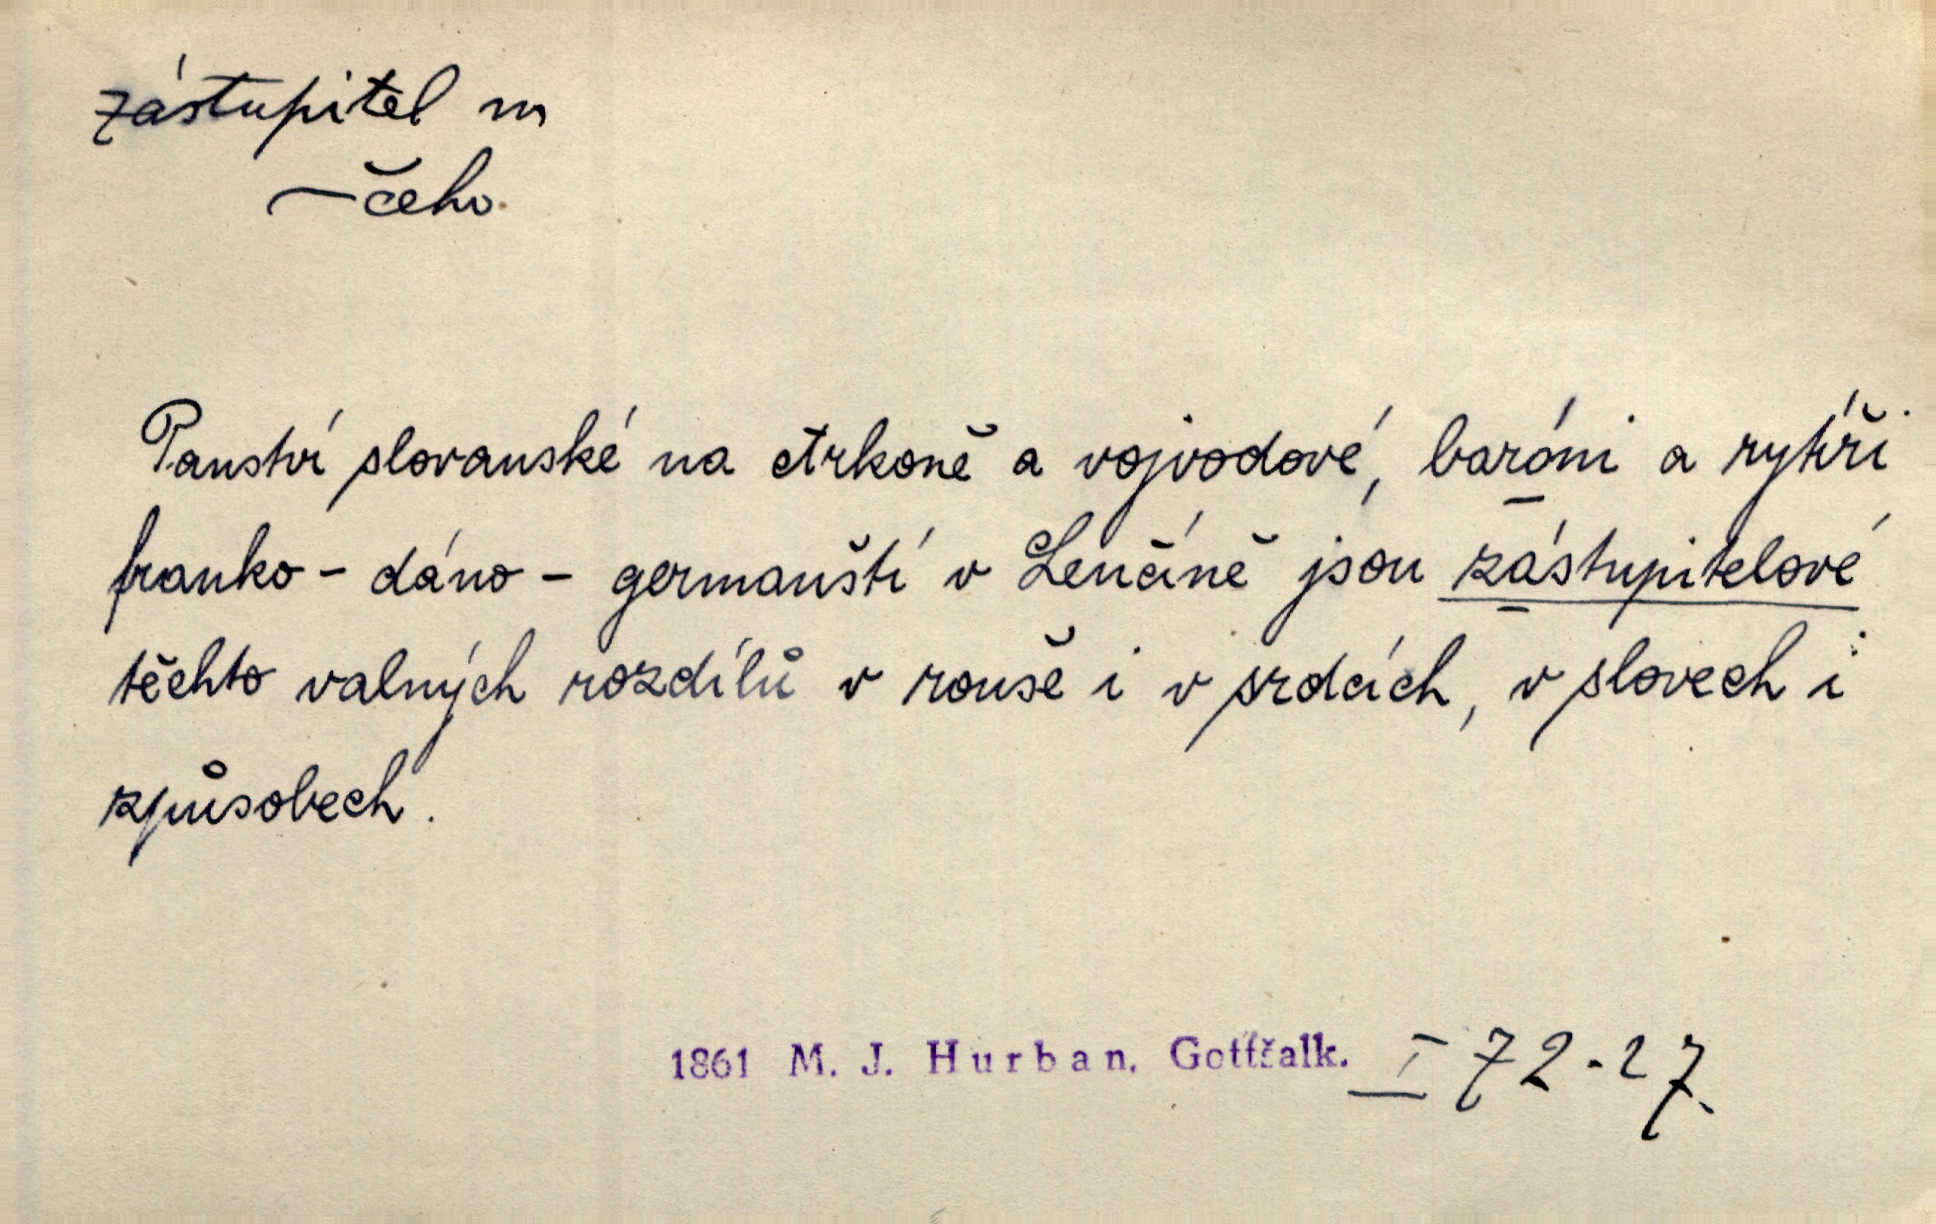 zástupitel m
— čeho
Panství slovanské na Arkoně a vojvodové, baróni a rytíři
franko - dáno - germanští v Lenčíně jsou zástupitelové
těchto valných rozdílů v rouše i v srdcích, v slovech i
způsobech.
1861 M. J. Hurban, Gottšalk. I 72-27.